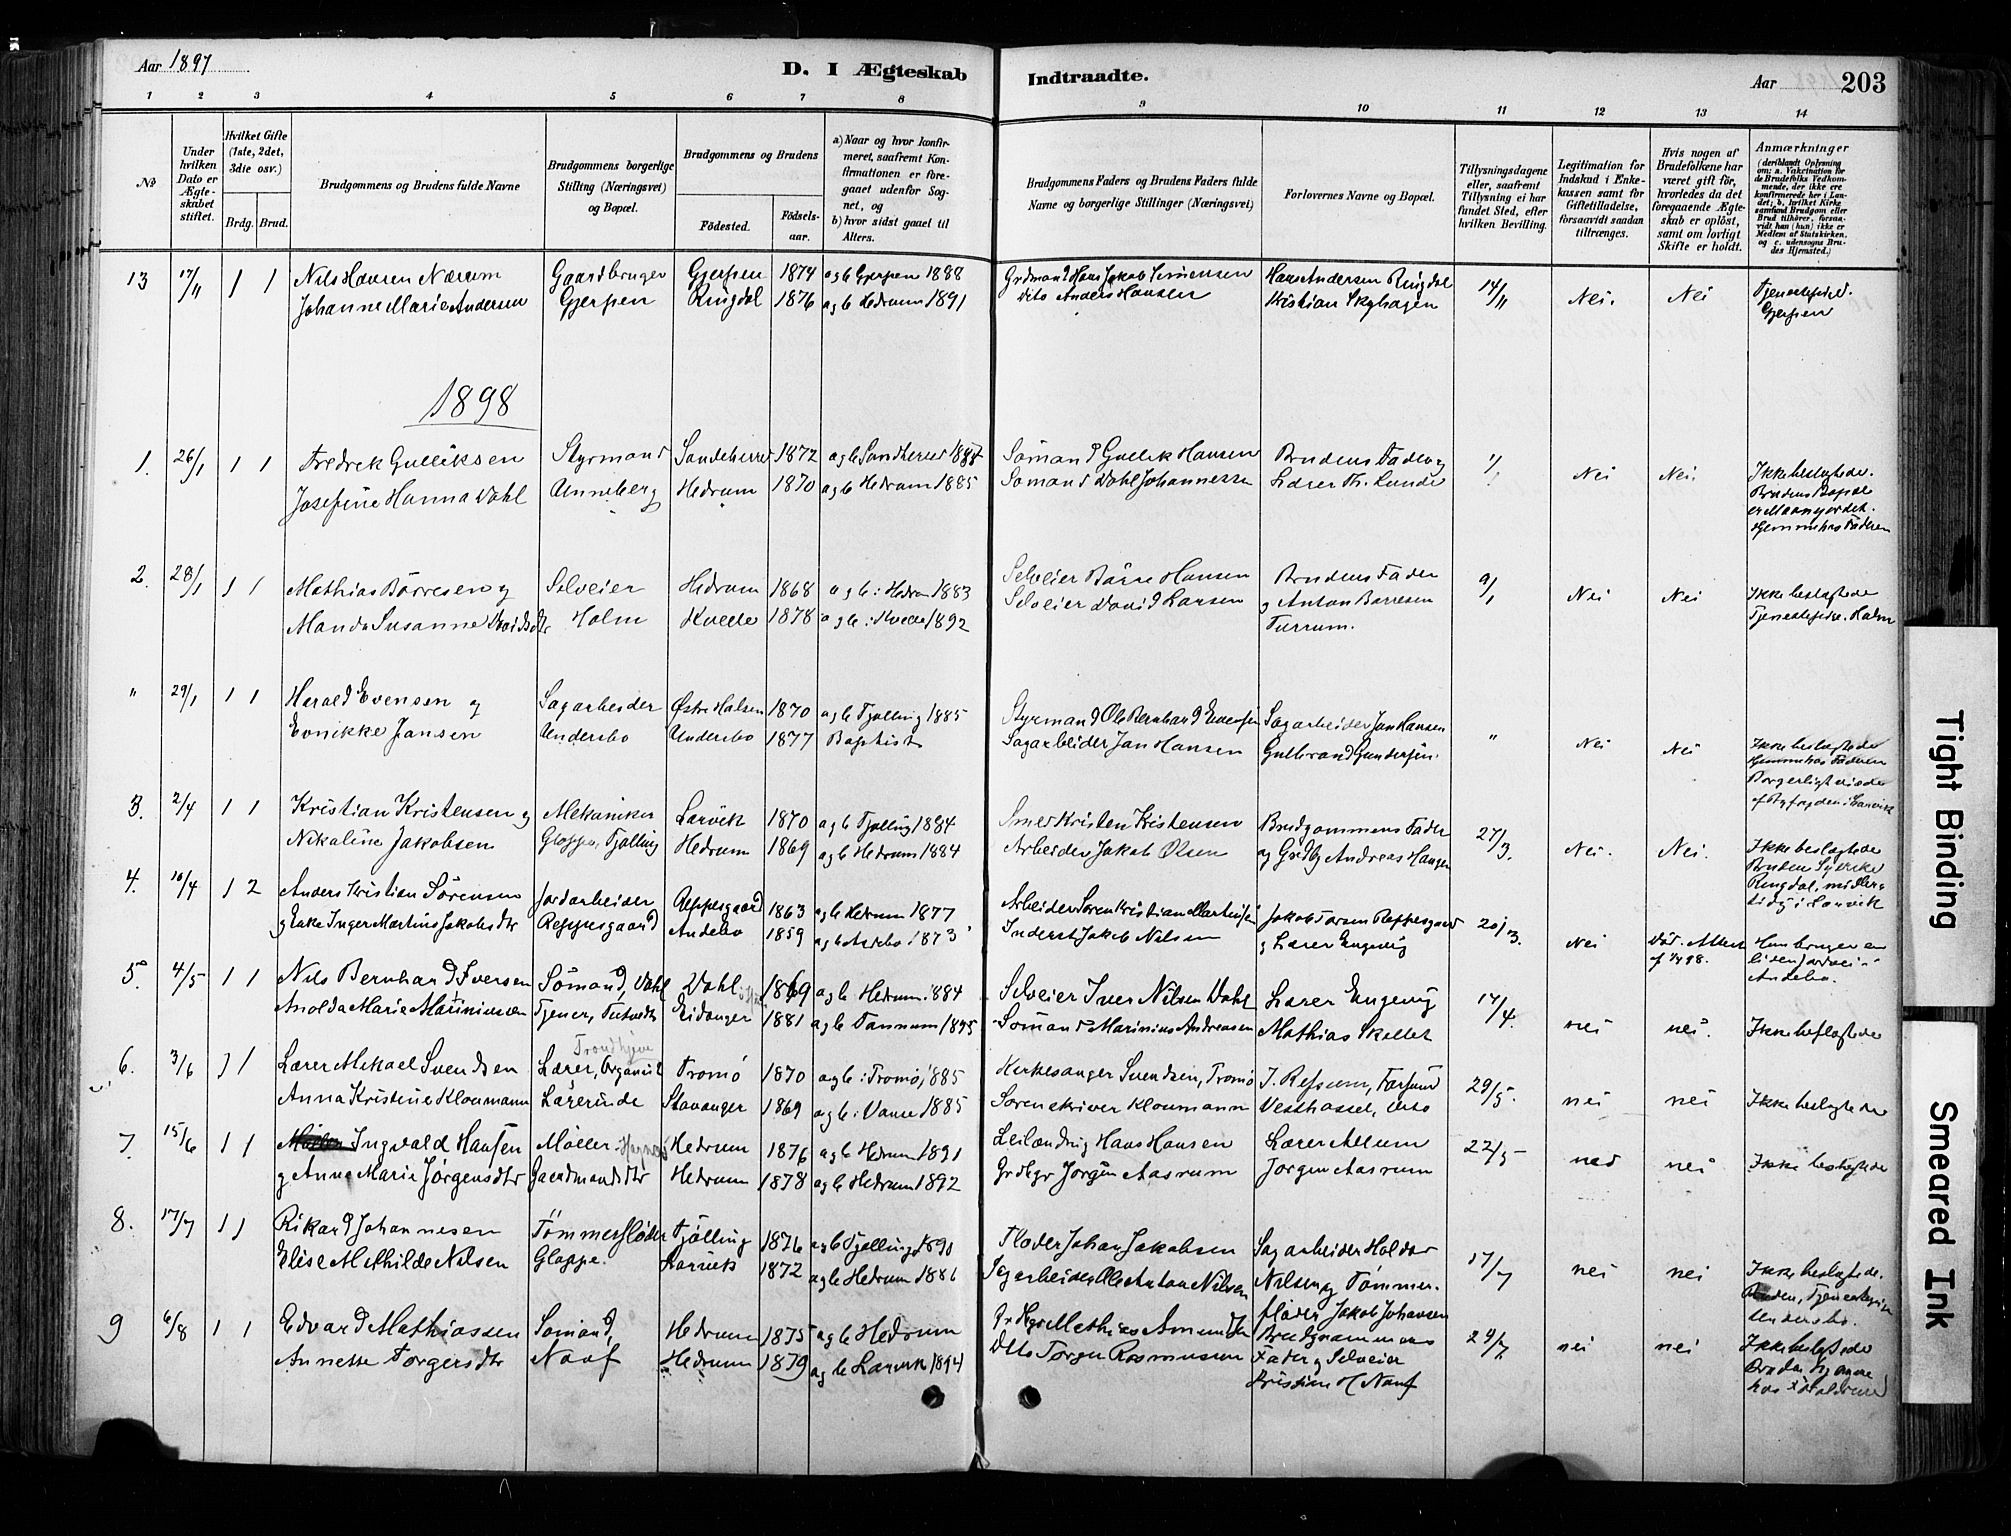 Aar 1897
D. I Ægteskab Indtraadte.
Aar 203
1 2 3 4 5 6 7 8 9 10 11 12 13 14
№
Under hvilken Dato er Ægteskabet stiftet.
Hvilket Gifte (1ste, 2det, 3die osv.)
Brdg. Brud.
Brudgommens og Brudens fulde Navne
Brudgommens borgerlige Stilling (Næringsvei) og Bopæl.
Brudgommens og Brudens
Fødested.
Fødselsaar.
a) Naar og hvor konfirmeret, saafremt Konfirmationen er foregaaet udenfor Sognet, og
b) hvor sidst gaaet til Alters.
Brudgommens Faders og Brudens Faders fulde Navne og borgerlige Stillinger (Næringsvei)
Forlovernes Navne og Bopæl.
Tillysningsdagene eller, saafremt Tillysning ei har fundet Sted, efter hvilken Bevilling.
Legitimation for Indskud i Enkekassen samt for Giftetilladelse, forsaavidt saadan tiltrænges.
Hvis nogen af Brudefolkene har været gift før, hvorledes da det foregaaende Ægteskab er opløst, samt om lovligt Skifte er holdt.
Anmærkninger
(deriblandt Oplysning om: a. Vakcination for de Brudefolks Vedkommende, der ikke ere konfirmerede her i Landet; b. hvilket Kirkesamfund Brudgom eller Brud tilhører, forsaavidt han (hun) ikke er Medlem af Statskirken, og c. udensogns Brudes Hjemsted.)
13 17/11 1 1 Nils Hansen Nærum Gaardbruger Gjerpen 1874 a g b Gjerpen 1888 Grdmand Hans Jakob Simensen Hans Andersen Ringdal 14/11 Nei. Nei Tjenestepige.
Johanne Marie Andersen Gjerpen Ringdal 1876 a g b Hedrum 1891 dito Anders Hansen Kristian Skyhagen Gjerpen
1898
1. 26/1 1 1 Fredrek Gulliksen Styrmand Sandeherred 1872 Sømand Gullik Hansen Brudens Fader og Nei Nei. Ikke beslægtede.
Josefine Hanna Dahl Anneberg Hedrum 1870 a g b Hedrum 1885 Sømand Dahl Johannessen Lærer Th. Lunde Brudens Bopæl
hjemme hos Faderen
2. 28/1 1 1 Mathias Børresen og Selveier Hedrum 1868 a g b: Hedrum 1883 Selveier Børre Hansen Brudens Fader 9/1 Nei Nei Ikke beslægtede
Manda Susanne Holm Kvelle 1878 a g b: Kvelle 1892 Selveier David Larsen og Anton Børresen Tjenestepige. Holm
Furrum.
" 29/1 1 1 Harald Evensen og Sagarbeider Østre Halsen 1870 a g b Tjølling 1885 Styrmand Ole Bernhard Evensen Sagarbeider Jan Hansen " Nei Nei Ikke beslægtede
Evnikke Jansen Undersbo Undersbo 1877 Baptist Sagarbeider Jan Hansen Gulbrand Gundersen. hjemme hos Faderen
Borgerligt viede
af Byfogden i Larvik
3. 2/4 1 1 Kristian Kristensen og Mekaniker Larvik 1870 a g b Tjølling 1884 Smed Kristen Kristensen Brudgommens Fader 27/3. Nei. Nei. Ikke beslægtede
Nikoline Jakobsen Gloppe, Tjølling Hedrum 1869 a g b Hedrum 1884 Arbeider Jakob Olsen og Grdbr Andreas Haugen
Ringdal, midler-
tidig i Larvik
4. 10/4 1 2 Anders Kristian Sørensen Jordarbeider Reppesgaard 1863 a g b Hedrum 1877 Arbeider Søren Kristian Martinsen Jakob Larsen Reppesgaard 20/3. Nei Hun bruger en
og Enke Inger Martine Jakobsdtr Reppesgaard Andebo 1859 a g b Andebo 1873 Inderst Jakob Nilsen og Lærer Engevig liden Jordvei i
Andebo.
5. 4/5 1 1 Nils Bernhard Iversen Sømand, Dahl Dahl 1869 a g b Hedrum 1884 Selveier Iver Nilsen Dahl Lærer Engevig 17/4. nei nei. Ikke beslægtede
Anolda Marie Mariniusen Tjener, Tutvedt Eidanger 1881 a g b Tanum 1895 Sømand Marinius Andreasen Mathias Skallet
6. 3/6 1 1 Lærer Mikael Svendsen Lærer, Organist Tromø 1870 a g b: Tromø, 1885 Kirkesanger Svendsen, Tromø J. Refsum, Farsund 29/5. nei nei Ikke beslægtede
Trondhjem
Anna Kristine Kloumann Lærerinde Stavanger 1869 a g b: Vanse 1885 Sorenskriver Kloumann Vesthassel, Lista
7. 15/6 1 1 Ingvald Hansen Møller Hedrum 1876 a g b Hedrum 1891 Leilændig Hans Hansen Lærer Allum 22/5 ned nei Ikke beslægtede
og Anna Marie Jørgensdtr Gaardmandsdtr Hedrum 1878 a g b Hedrum 1892 Grdbgr Jørgen Aasrum Jørgen Aasrum
8. 17/7 1 1 Rikard Johannesen Tømmerfløder Tjølling 1876 a g b Tjølling 1890 Fløder Johan Jakobsen Sagarbeider Haldor 17/7 nei nei Ikke beslægtede.
Elise Mathilde Nilsen Gloppe. Larvik 1872 a g b Hedrum 1886 Sagarbeider Ole Anton Nilsen Nilsen og Tømmer- Bruden, Tjenestepige
fløder Jakob Johansen Undersbo.
9 6/8 1 1 Edvard Mathiassen Sømand, Hedrum 1875 a g b Hedrum Grdbgr Mathias Amundsen Brudgommens 24/7 nei nei Ikke beslægtede
Annette Torgersdtr Nauf Hedrum 1879 a g b Larvik 1894 Dtto Torger Rasmussen Fader og Selveier Bruden hjemme
Kristian H Nauf hos
Tight Binding
Smeared Ink